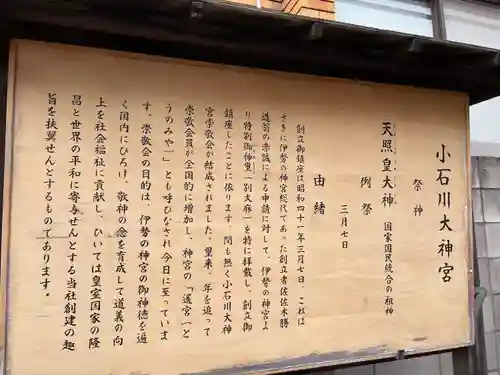 小石川大神宮
祭神
天照皇大神 国家国民統合の祖神
例祭
三月七日
由緒
創立御鎮座は昭和四十一年三月七日、これは
さきに伊勢の神宮総代であった創立者佐佐木勝
造翁の赤誠による申請に対して、伊勢の神宮よ
り特別御神璽「別大麻」を特に拝戴し、創立御
鎮座したことに依ります。間も無く小石川大神
宮崇敬会が結成されました。翌来、年を追って
崇敬会員が全国的に増加し、神宮の「遙宮」と
うのみや」」とも呼びなされ今日に至っていま
す。崇敬会の目的は、伊勢の神宮の御神徳を遍
く国内にひろげ、敬神の念を育成して道義の向
上を社会福祉に貢献し、ひいては皇室国家の隆
昌と世界の平和に寄与せんとする当社創建の趣
旨を扶翼せんとするものであります。